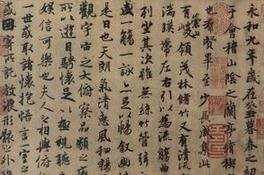 永和九年歲在癸丑暮春之初
于會稽山陰之蘭亭脩稧
群賢畢至少長咸集此
有崇山峻領茂林脩竹又有清流
湍暎帶左右引以為流觴
列坐其次雖無絲竹管弦
盛一觴一詠亦足以暢敘幽
是日也天朗氣清惠風和暢
觀宇宙之大俯察品類
所以遊目騁懷足以極視聽
娛信可樂也夫人之相與俯
世或取諸懷抱悟言一室
或因寄所託放浪形骸之外